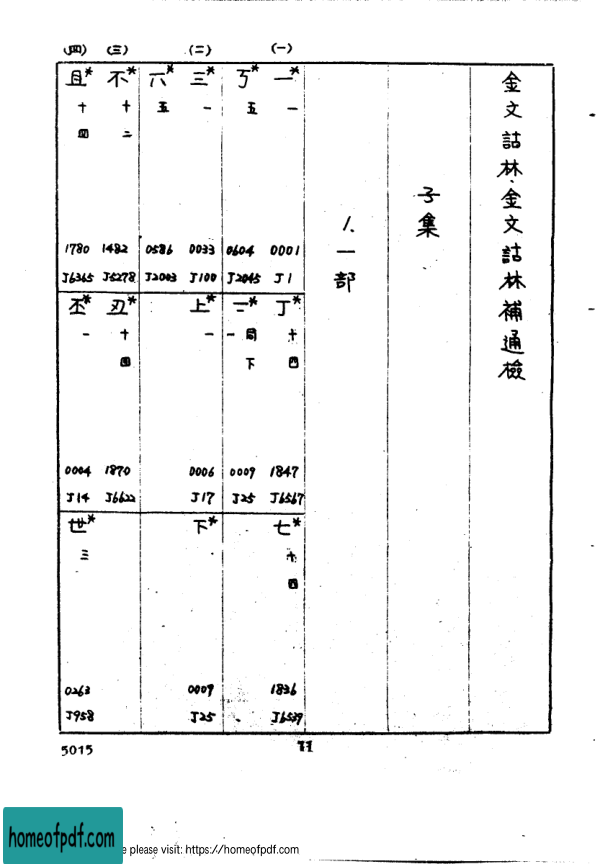 金文詁林·金文詁林補通檢
子集
1. 一部
(一)
一*
一
0001
J1
丁*
十四
1847
J6567
七*
十四
1836
J6539
丂*
五
0604
J2045
二*
同下
一
0009
J25
(二)
三*
一
0033
J100
上*
一
0006
J17
下*
0009
J25
六*
五
0586
J2003
(三)
不*
十二
1482
J5278
刃*
十四
1870
J6622
(四)
且*
十四
1780
J6365
丕*
一
0004
J14
世*
三
0263
J958
5015
11
homeofpdf.com
e please visit: https://homeofpdf.com